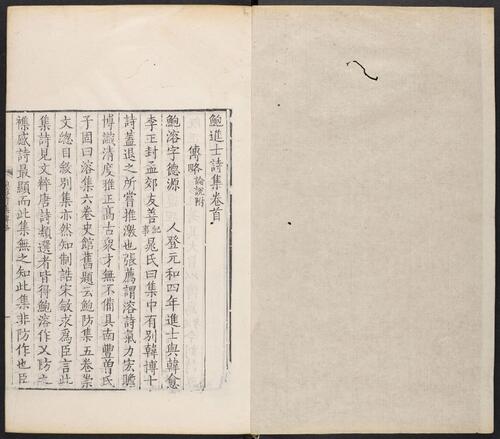 鮑進士詩集卷首
傳略 論說附
鮑溶字德源　人登元和四年進士與韓愈
李正封孟郊友善 紀事 晁氏曰集中有別韓博士
詩蓋退之所嘗推激也張薦謂溶詩氣力宏贍
博識清度雅正高古衆才無不備具南豐曾氏
子固曰溶集六卷史館舊題云鮑防集五卷崇
文總目敘別集亦然知制誥宋敏求爲臣言此
集詩見文粹唐詩類選者皆稱鮑溶作又防之
襍感詩最顯而此集無之知此集非防作也臣